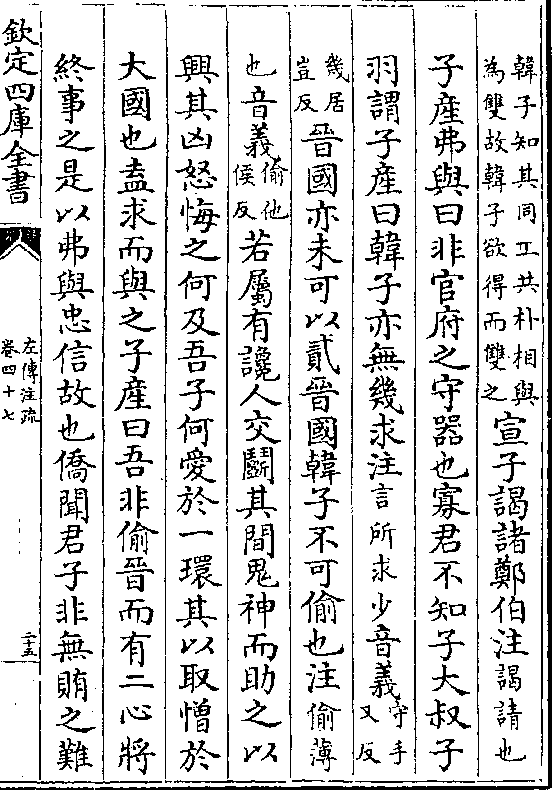 韓子知其同工共朴相與
為雙故韓子欲得而雙之
宣子謁諸鄭伯注謁請也
子產弗與曰非官府之守器也寡君不知子大叔子
羽謂子產曰韓子亦無幾求注言所求少音義守手又反
幾居豈反晉國亦未可以貳晉國韓子不可偷也注偷薄
也音義偷他侯反若屬有讒人交鬭其間鬼神而助之以
興其凶怒悔之何及吾子何愛於一環其以取憎於
大國也盍求而與之子產曰吾非偷晉而有二心將
終事之是以弗與忠信故也僑聞君子非無賄之難
欽定四庫全書
左傳注疏
卷四十七
二十五